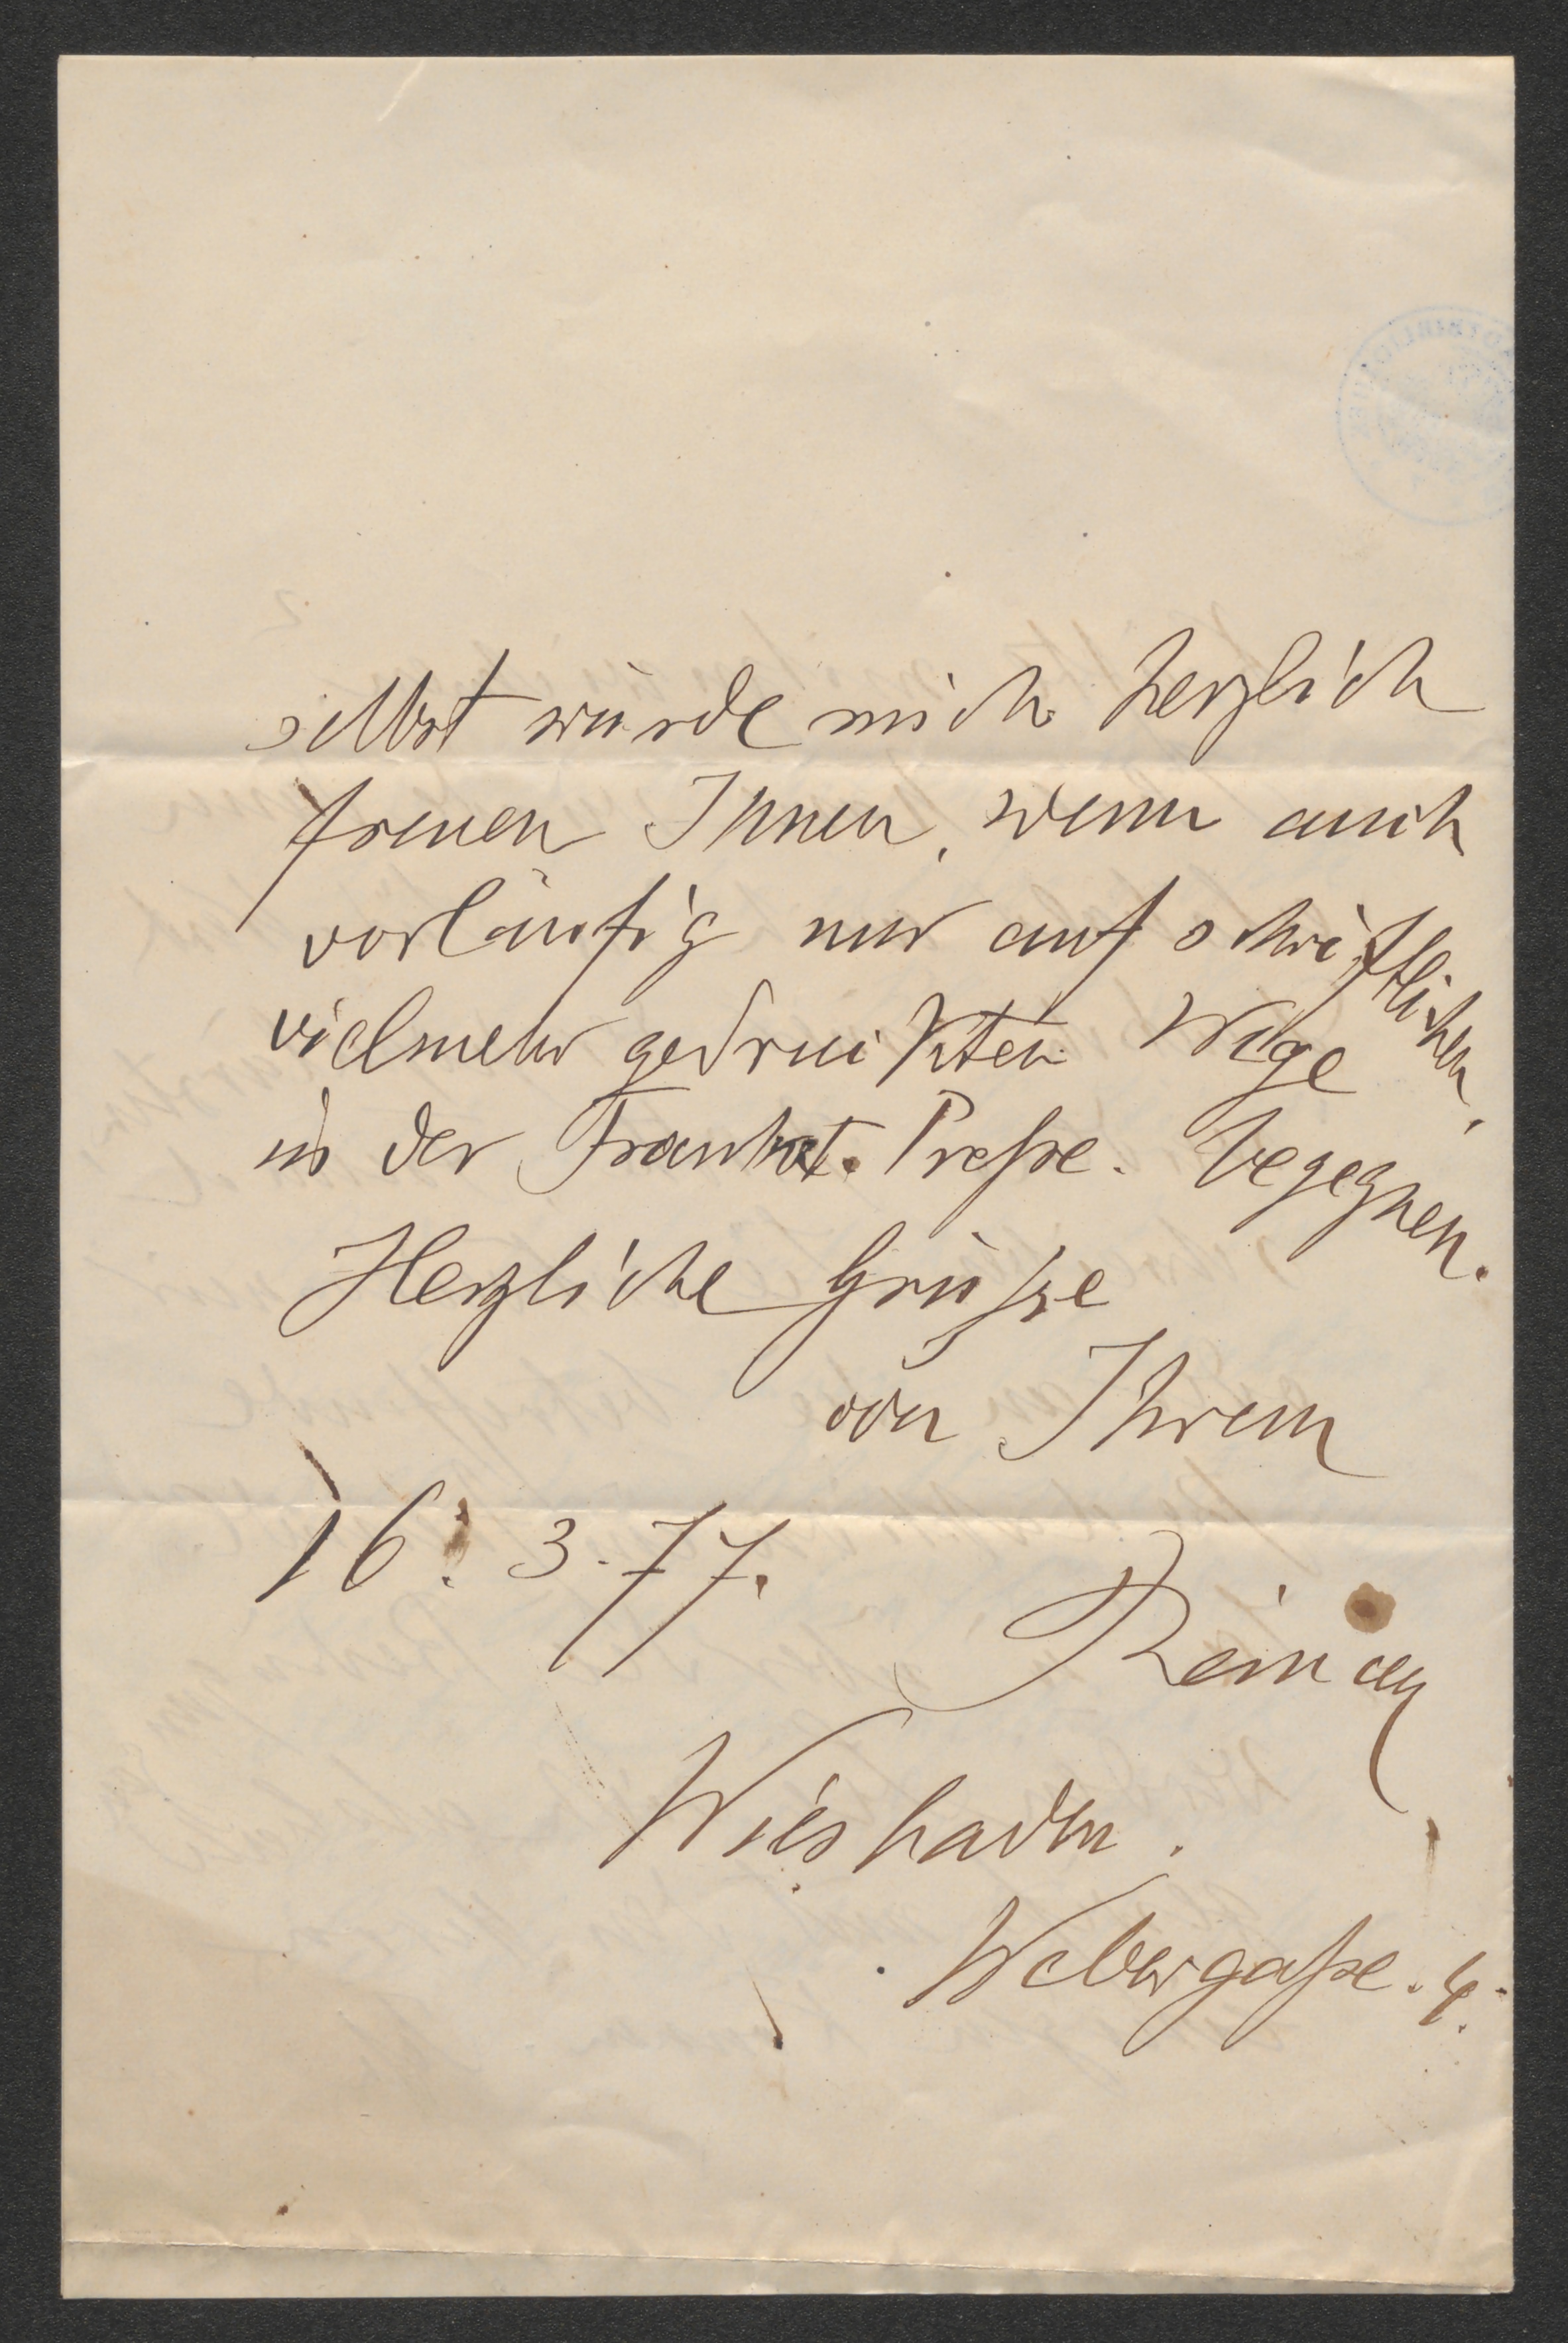 selbst würde mich herzlich
freuen Ihnen, wenn auch
vorläufig nur auf schriftlichen,
vielmehr gedruckten Wege
in der Frankft. Preße. begegnen.
Herzliche Grüße
von Ihrem
16. 3. 77.
Wiesbaden.
Webergaße. 4.